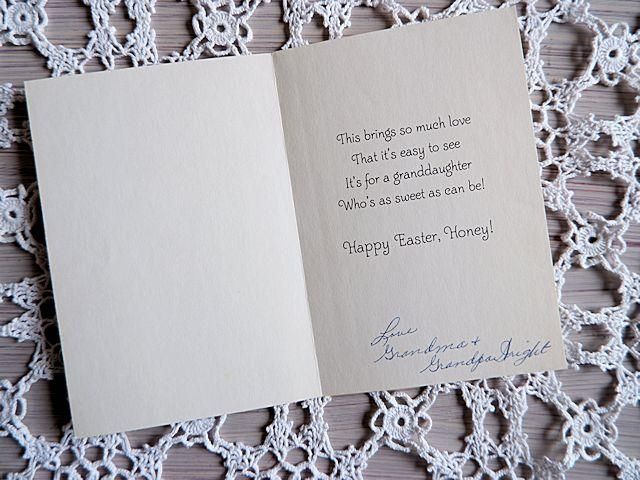 This brings so much love
That it's easy to see
It's for a granddaughter
Who's as sweet as can be!
Happy Easter, Honey!
Love
Grandma +
Grandpa